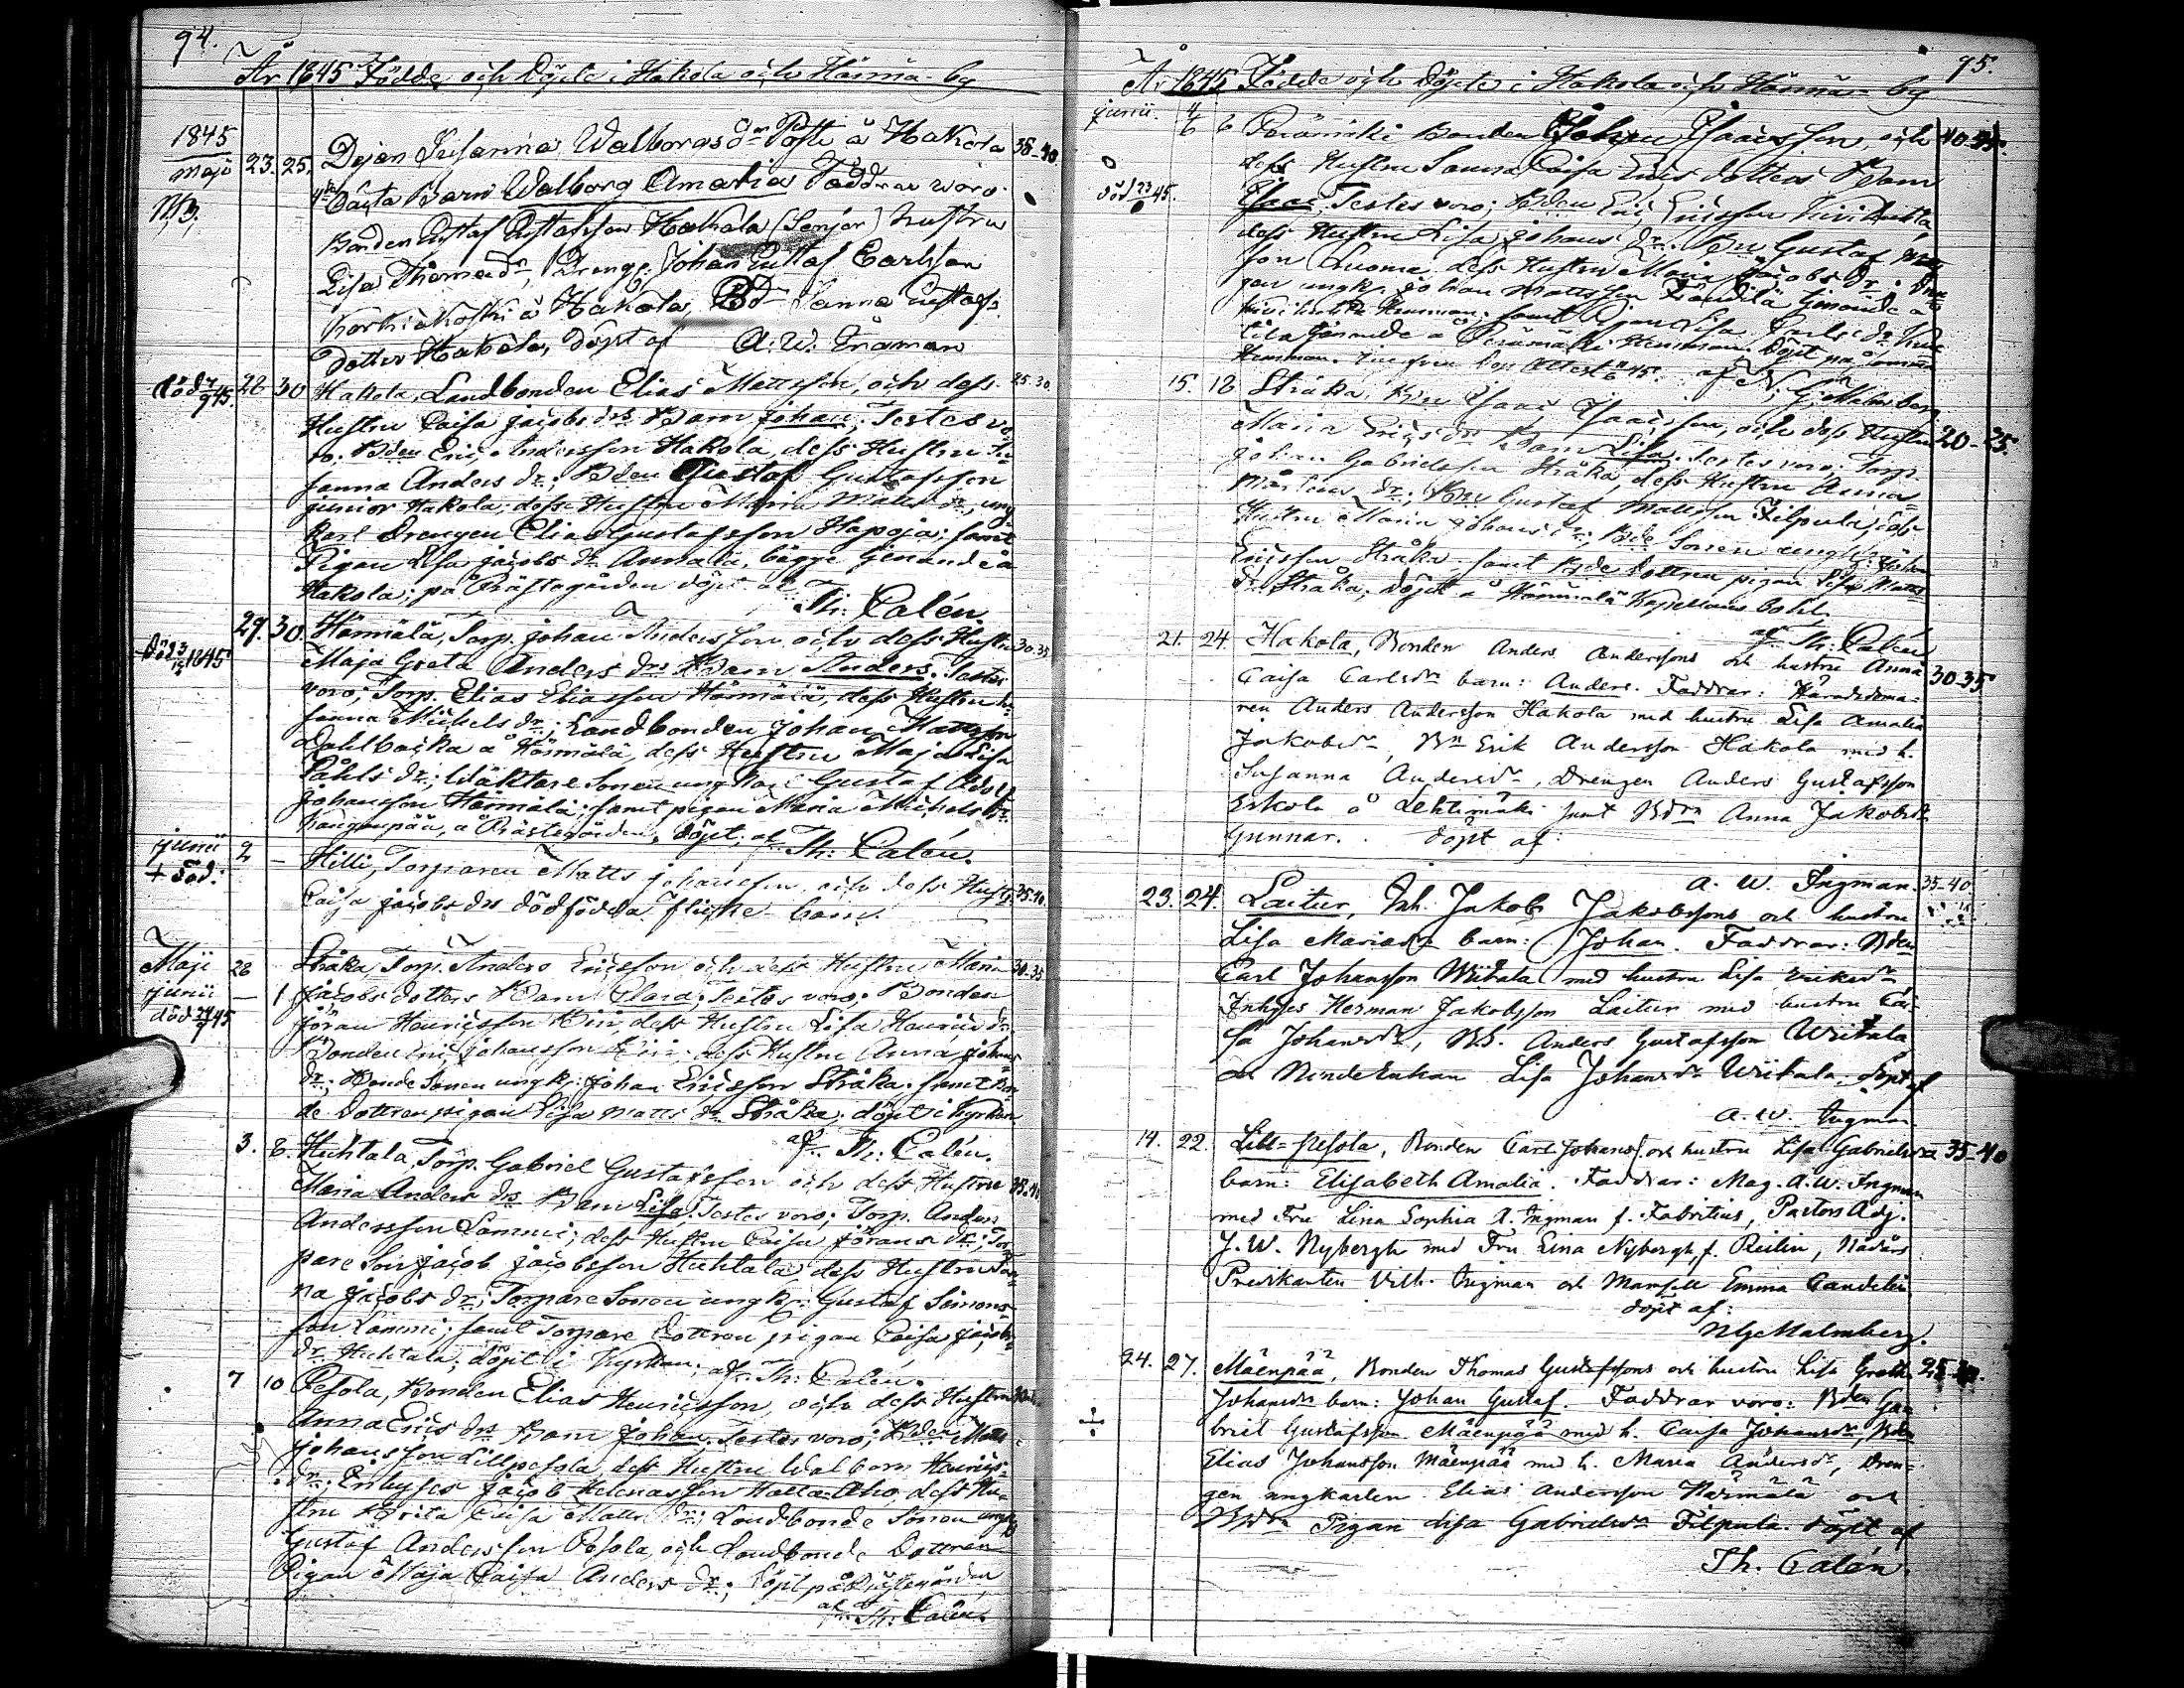 94.
År 1845 Födde och Döpte i Hakola och Härmä by
1845
Maji 23. 25. Pigan Susanna Walborgsdr Posti å Hakola 35-40.
N.B. oäkta Barn Walborg Amalia Faddrar woro
Bonden Gustaf Gustafsson Hakola (Senior) hustru
Lisa Thomasdr, Drenge. Johan Gustaf Carlsson
Karhiakoski å Hakola, Bd Sanna Gustafs-
dotter Hakola, döpt af A. W. Ingman
död 945. 28 30 Hakola, Landbonden Elias Mattsson, och dess 25-30
Hustru Caisa Jacobs drs Barn Johan. Testes vo-
ro: Bden Eric Andersson Hakola, dess Hustru Su-
sanna Anders dr; Bden Gustaf Gustafsson
junior Hakola; dess Hustru Maria Matts dr; ung-
karl Drengen Elias Gustafsson Hapoja; samt
Pigan Lisa Jacobs dr Annala, bägge tjenande å
Hakola; på Prästegården döpt af
Th: Calén.
29. 30. Härmälä, Torp. Johan Andersson och dess Hustru 30-35
död 1845 Maja Greta Anders drs Barn Anders. Testes
voro; Torp. Elias Eliasson Härmälä, dess Hustru Su-
sanna Michels dr; Landbonden Johan Mattsson
Dahlbacka å Härmälä, dess Hustru Maja Lisa
Påhls dr; Wäktare Sonen ungkarl Gustaf Adolf
Johansson Härmälä; samt pigan Maria Michels dr
Kangaspää, å Prästegården. döpt af Th: Calén.
Junii 2 – Hilli, Torparen Matts Johansson, och dess Hustru 35-40.
+ död. Caisa Jacobs drs dödfödda flicke barn.
Maji 28 Stråka, Torp. Anders Ericsson och dess Hustru Maria 30-35
Junii – 1 Jacobs dotters Barn Clara; Testes voro; Bonden
död 45 Jöran Henricsson Kivi, dess Hustru Lisa Henrics dr.
Bonden Eric Johansson Kivi; dess Hustru Anna Johans
dr; Bonde Sonen ungk: Johan Ericsson Stråka; samt Bon-
de Dottren pigan Lisa Matts dr Stråka; döpt i Kyrkan
af Th: Calén.
3. 8. Huhtala, Torp. Gabriel Gustafsson och dess Hustru
Maria Anders drs Barn Lisa. Testes voro; Torp. Anders
Andersson Lammi; dess Hustru Caisa Jörans dr; Tor-
pare Son Jacob Jacobsson Huhtala dess Hustru San-
na Jacobs dr; Torpare Sonen ungk: Gustaf Simons-
son Lammi; samt Torpare Dottren pigan Caisa Jacobs
dr Huhtala; döpt i Kyrkan; af Th: Calén.
7 10 Pesola, Bonden Elias Henricsson, och dess Hustru
Anna Erics drs Barn Johan. Testes voro; Bden Matts
Johansson Lillpesola, dess Hustru Walborg Henrics
dr; Inhyses Jacob Helenasson Hallaaho, dess Hu-
stru Brita Caisa Matts dr; Landbonde Sonen ungk
Gustaf Andersson Pesola, och Landbonde Dottren
Pigan Maja Caisa Anders dr; döpt på Prästegården
af Th: Calén.
95.
År 1845 Födde och Döpte i Hakola och Härmä by
Junii. 4/6 8 Perämäki Bonden Johan Isacsson, och 40-35.
dess Hustru Sanna Caisa Erics dotters Barn
död 45. Isac. Testes voro; Bden Eric Ericsson Kivihuhta
dess Hustru Lisa Johans dr. Bn Gustaf
son Luoma dess Hustru Maria Jacobs dr; Dren-
gen ungk. Johan Mattsson tjenande å
Kivihuhta Hemman; samt Pigan Lisa Carls dr
tjenande å Perämäki Hemman. Döpt på samma
Hemman. af N. G. Malmberg
15. 18 Stråka, Bn Isaac Isaacsson, och dess Hustru 20-25.
Maria Erics drs Barn Lisa. Testes voro; Torp.
Johan Gabrielsson Stråka, dess Hustru Anna
Mårtens dr; Bn Gustaf Mattsson Filpula, dess
Hustru Maria Johans dr; Bde Sonen ungk: Johan
Ericsson Stråka samt Bde Dottren pigan Lisa Matts
dr Stråka, döpt å Härmälä Kapellans bohl,
af Th: Calén
21. 24. Hakola, Bonden Anders Anderssons och hustru Anna 30-35.
Caisa Carlsdrs barn: Anders. Faddrar: Häradsdoma-
ren Anders Andersson Hakola med hustru Lisa Amalia
Jakobsdr, Bn Erik Andersson Hakola med h.
Susanna Andersdr, Drengen Anders Gustafsson
Eskola å Lehtimäki samt Bdrn Anna Jakobsdr
Gunnar. döpt af:
A. W. Ingman.
23. 24. Laitur, Inh. Jakob Jakobssons och hustru 35-40
Lisa Mariasdr barn: Johan. Faddrar: Bden
Carl Johansson Wiitala med hustru Lisa Eriksdr
Inhyses Herman Jakobsson Laitur med hustru Cai-
sa Johansdr, B.S. Anders Gustafsson Wiitala
och Bondedottran Lisa Johansdr Wiitala. Döpt af
A. W. Ingman
14. 22. Lill-Pesola, Bonden Carl Johanss. och hustru Lisa Gabrielsdrs 35-40
barn: Elisabeth Amalia. Faddrar: Mag. A. W. Ingman
med Fru Lina Sophia A. Ingman f. Fabritius, Pastors Adj.
J. W. Nybergh med Fru Lina Nybergh f. Reilin, Nådårs
Predikanten Vilh. Ingman och Mamsell Emma Candelin
döpt af:
N G Malmberg.
24. 27. Mäenpää, Bonden Thomas Gustafssons och hustru Lisa Greth. 25-30.
Johansdrs barn: Johan Gustaf. Faddrar voro: Bden Ga-
briel Gustafsson Mäenpää med h. Caisa Johansdr, Bden
Elias Johansson Mäenpää med h. Maria Andersdr, Dren-
gen ungkarlen Elias Andersson Härmälä och
Bdrn Pigan Lisa Gabrielsdr Filpula. Döpt af
Th. Calén.